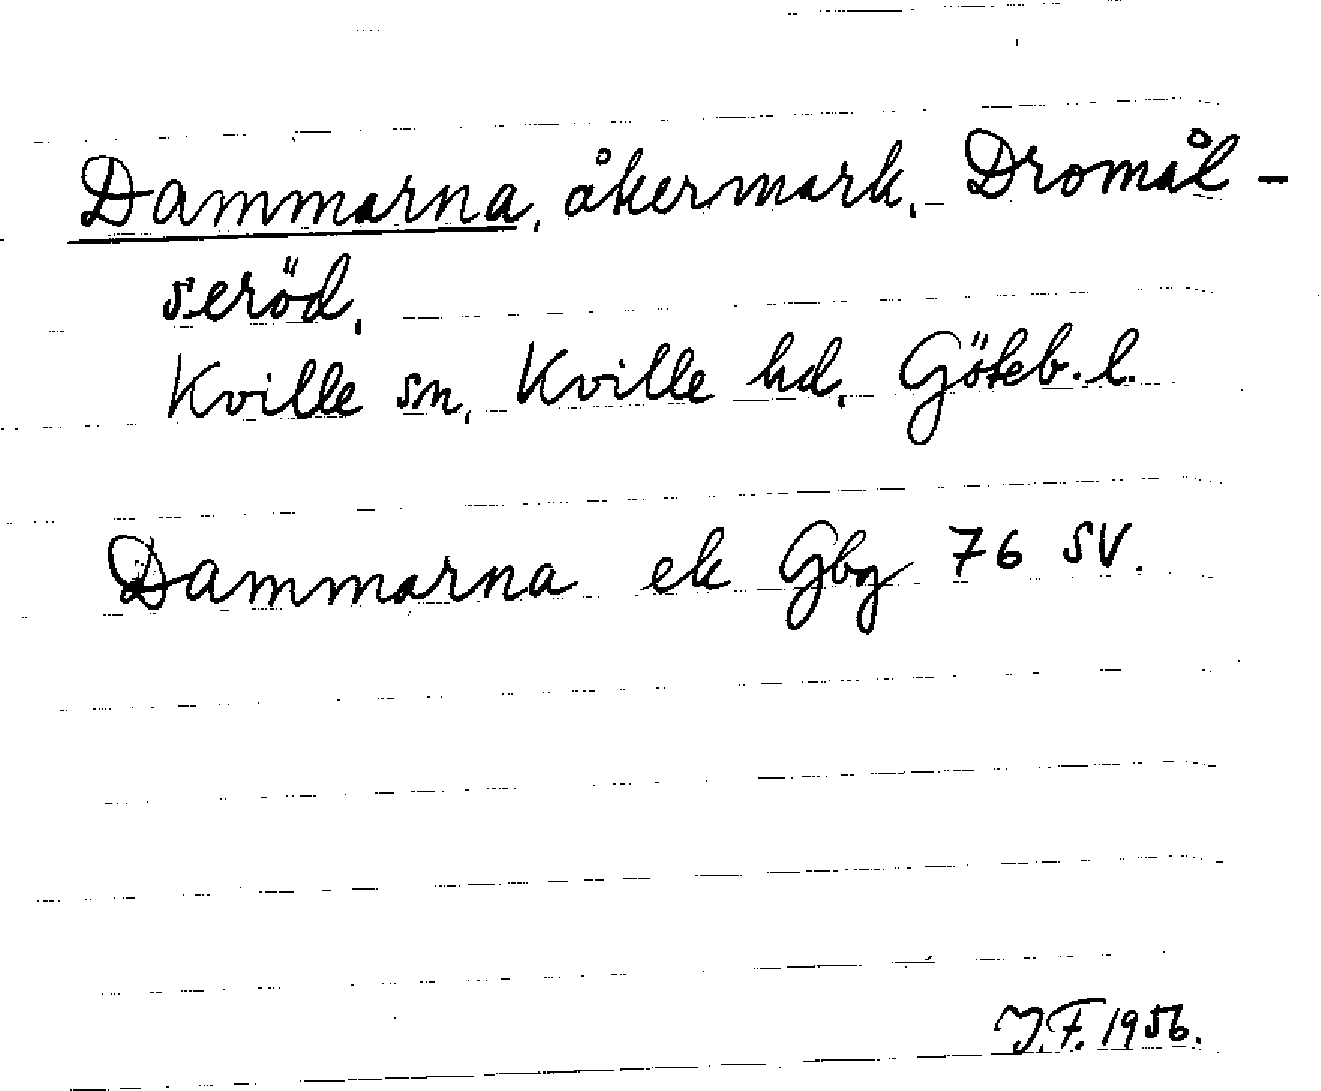 Dammarna, åkermark, Dromål-
seröd,
Kville sn, Kville hd, Göteb. l.
Dammarna ek Gbg 76 SV.
J.F. 1956.